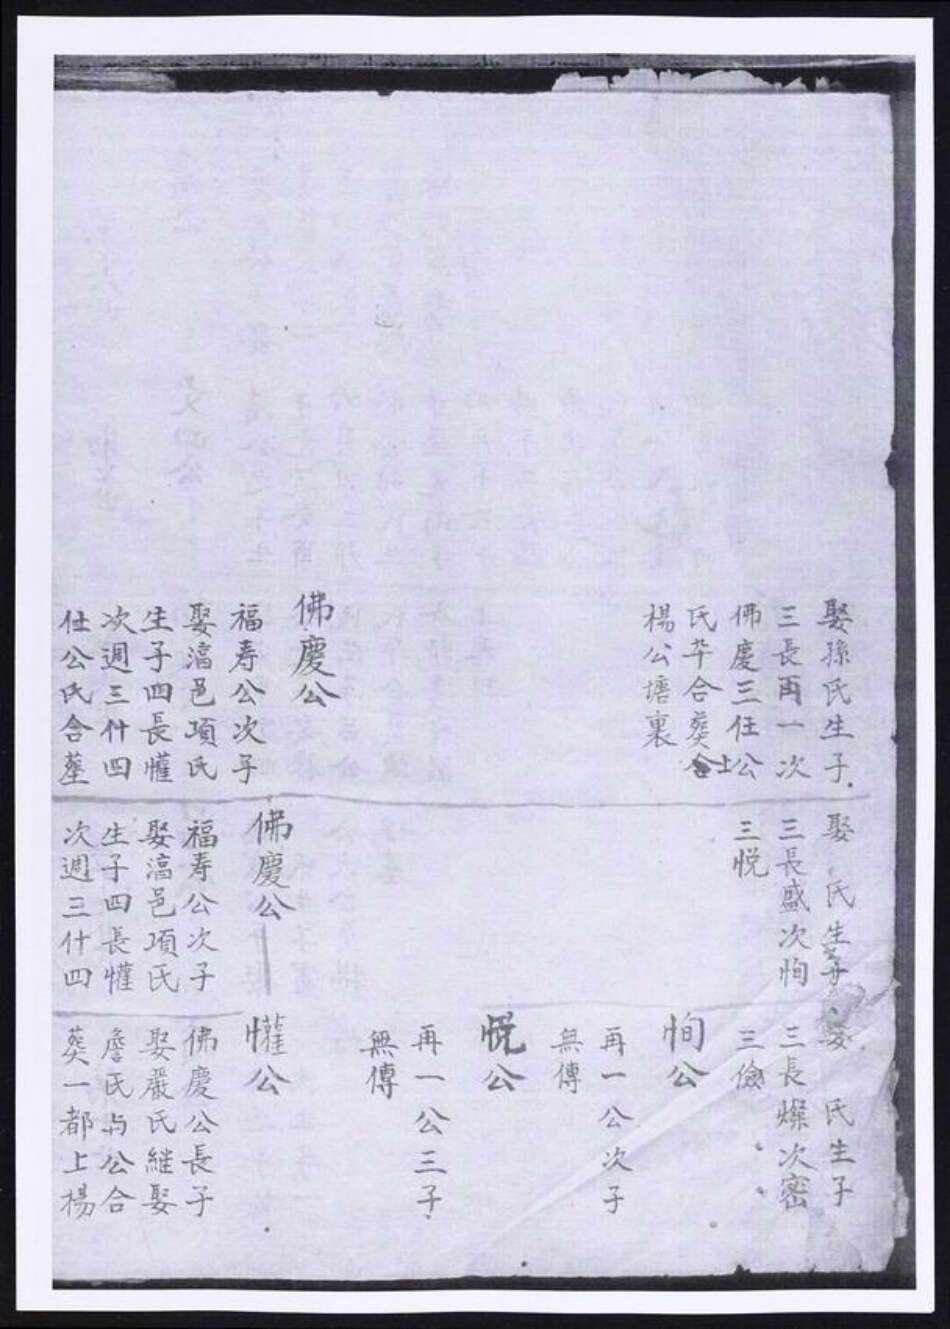 娶孫氏生子
三長再一次
佛慶三任公
氏卒合葬土
楊公塘裏
佛慶公
福寿公次子
娶濇邑項氏
生子四長懽
次週三什四
仕公氏合塟
娶 氏生子
三長盛次恂
三悦
佛慶公
福寿公次子
娶濇邑項氏
生子四長懽
次週三什四
娶 氏生子
三長燦次密
三儉
恂公
再一公次子
無傳
悦公
再一公三子
無傳
懽公
佛慶公長子
娶嚴氏継娶
詹氏与公合
葬一都上楊